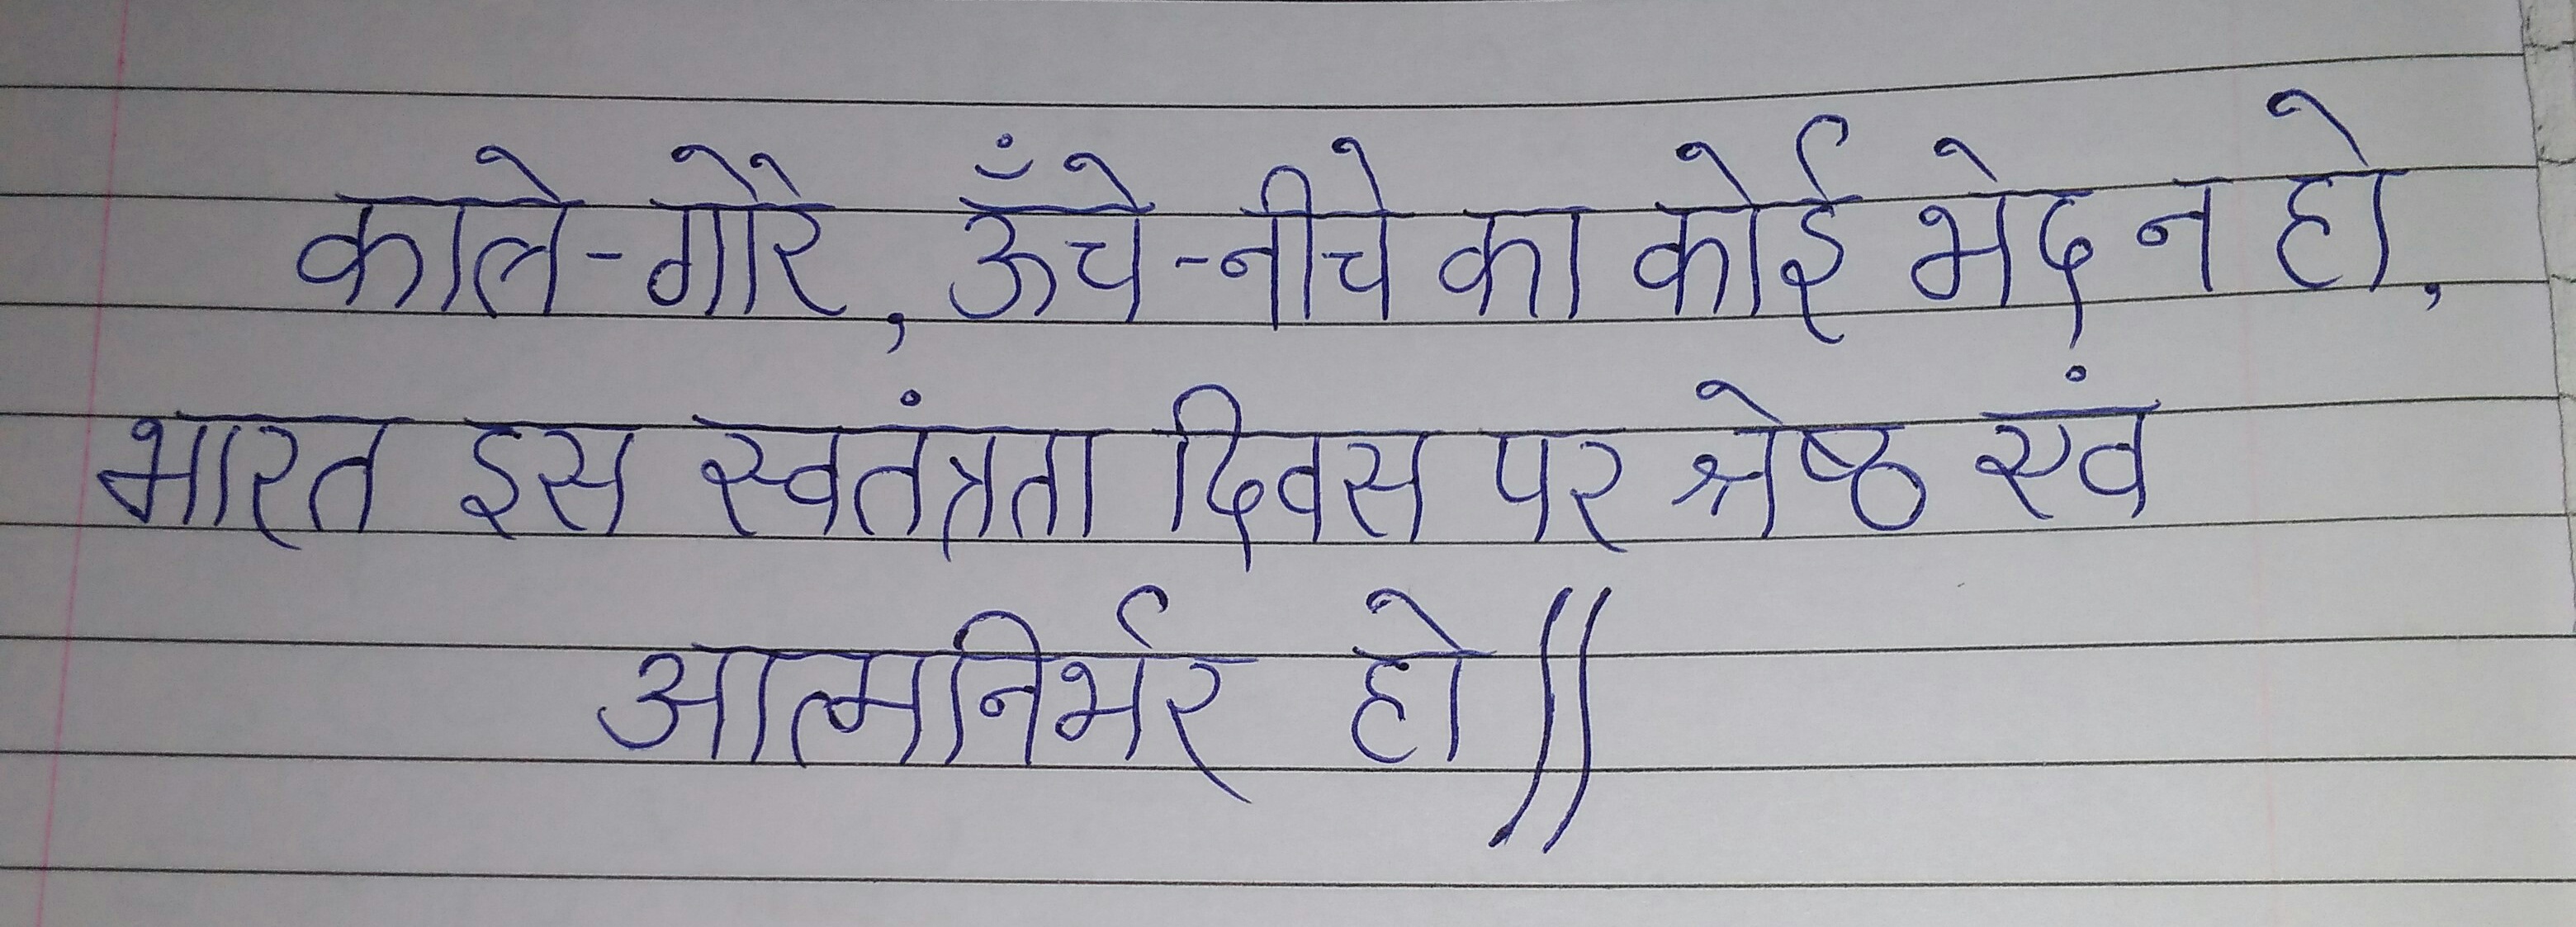 काले-गोरे, ऊँचे-नीचे का कोई भेद न हो,
भारत इस स्वतंत्रता दिवस पर श्रेष्ठ एवं
आत्मनिर्भर हो॥